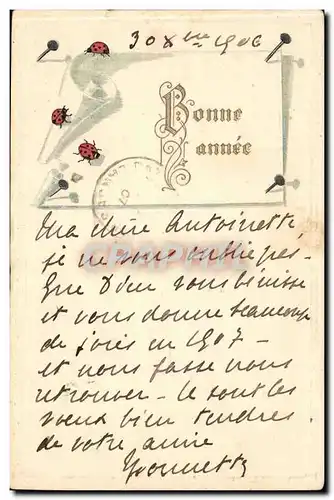 30 Xbre 1906
Bonne
année
Ma chère Antoinette,
je ne vous oublie pas -
Que Dieu vous bénisse
et vous donne beaucoup
de joies en 1907 -
et nous fasse nous
retrouver - Ce sont les
voeux bien tendres
de votre amie
Yvonnette